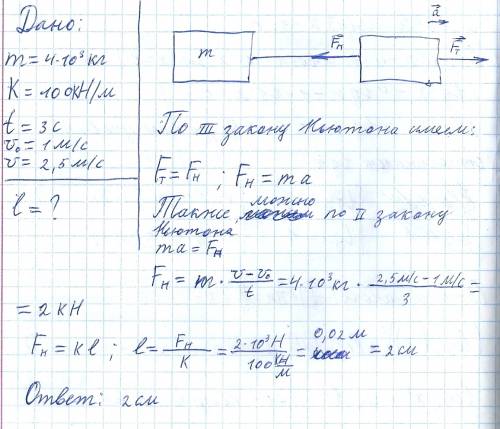 Дано:
m = 4·10³ кг
K = 100 кН/м
t = 3 с
v₀ = 1 м/с
v = 2,5 м/с
l = ?
m
F⃗н
a⃗
F⃗т
По III закону Ньютона имеем:
Fт = Fн ; Fн = ma
Также, можно по II закону
Ньютона
ma = Fн
Fн = m · (v - v₀)/t = 4·10³ кг · (2,5 м/с - 1 м/с)/3 =
= 2 кН
Fн = kl ; l = Fн/K = 2·10³ Н/100 кН/м = 0,02 м = 2 см
Ответ: 2 см